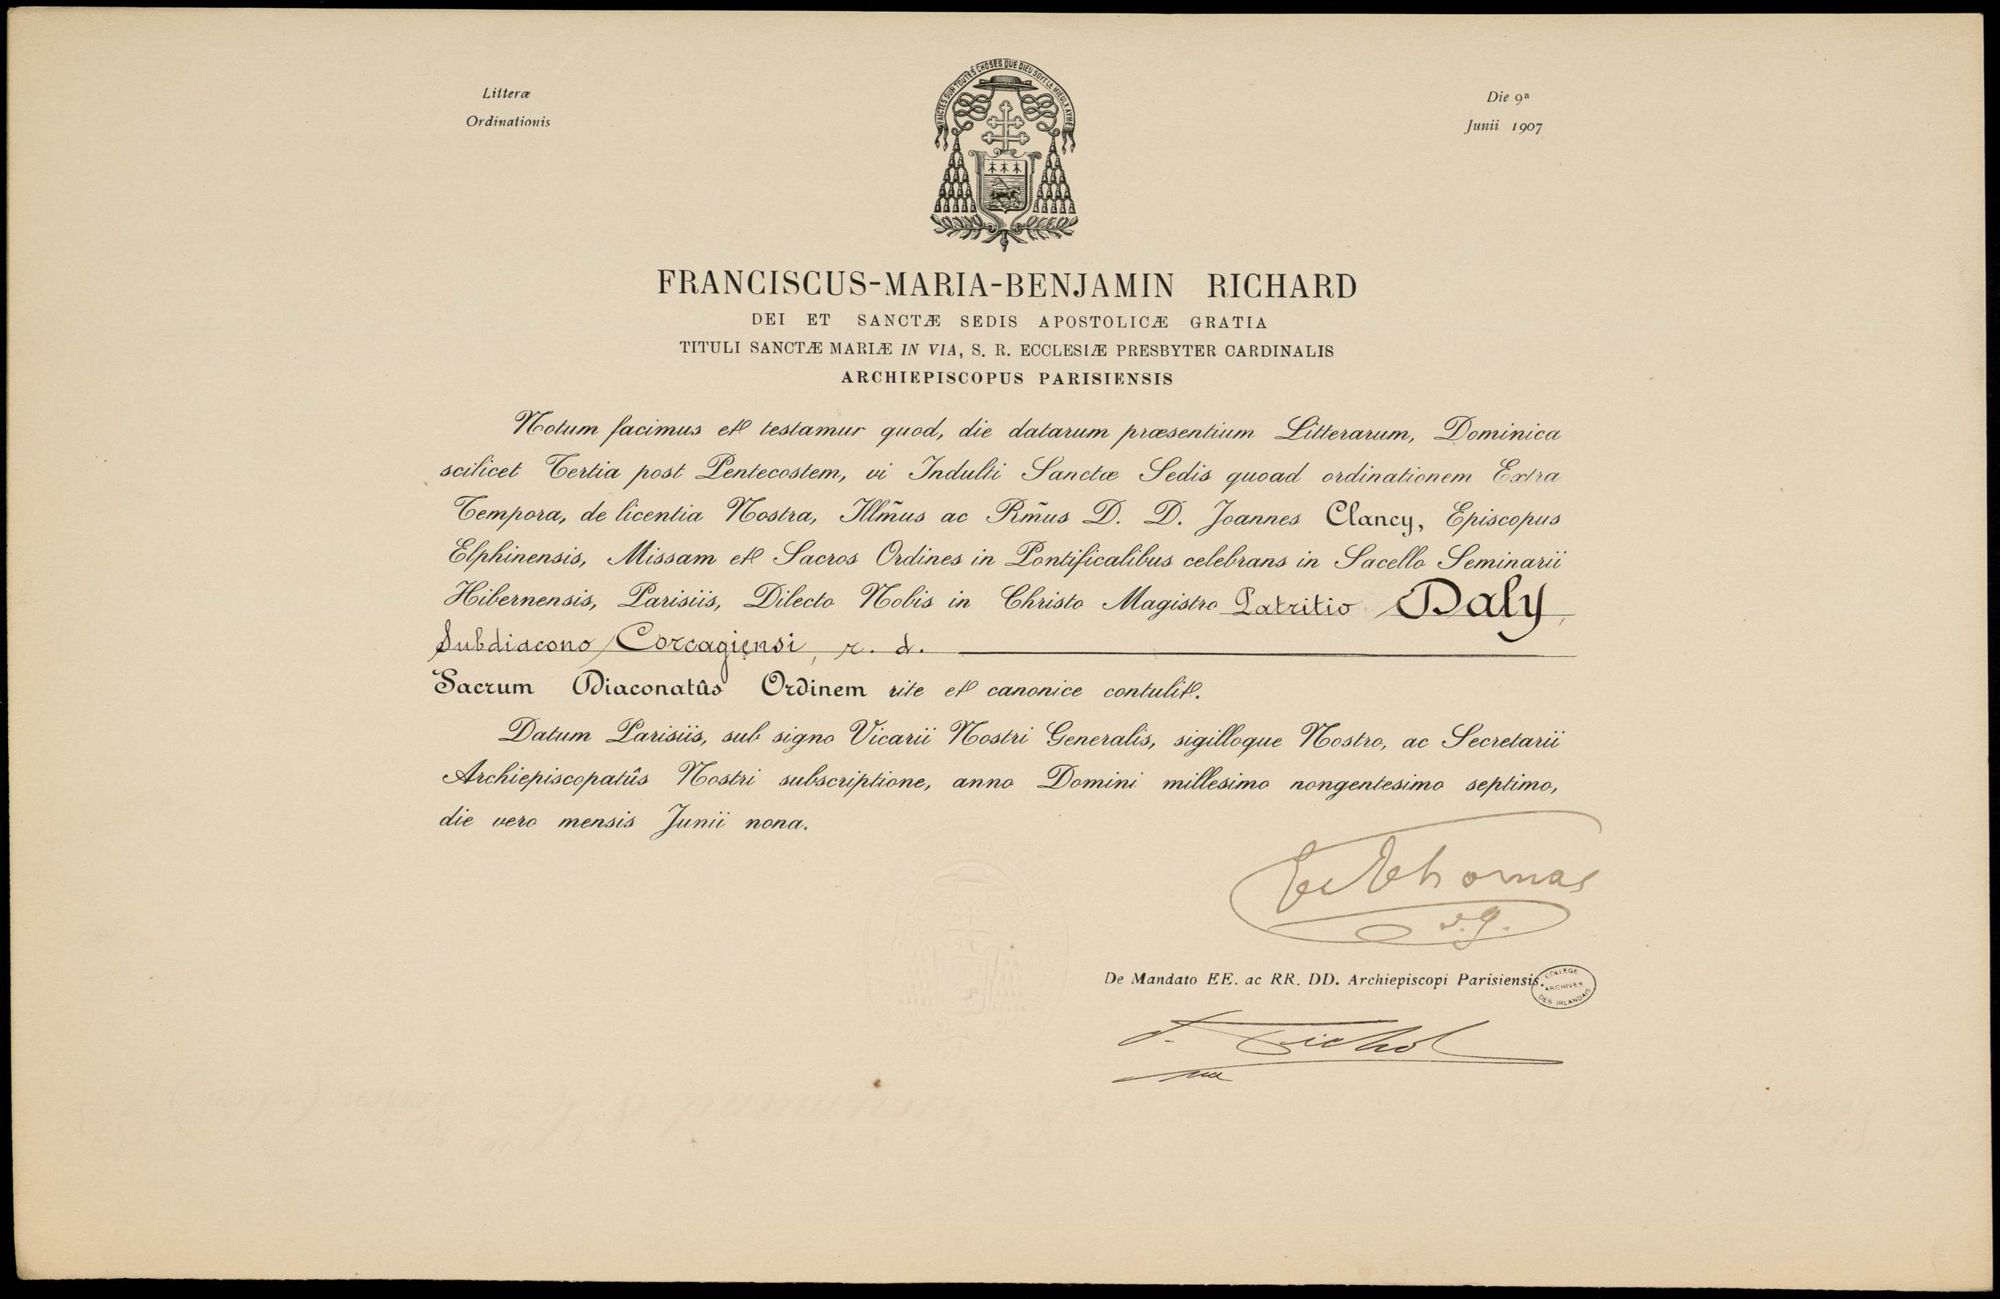 Litteræ
Ordinationis
Die 9ª
Junii 1907
FAICTES SUR TOUTES CHOSES QUE DIEU SOYT LE MIEULX AYMÉ
FRANCISCUS-MARIA-BENJAMIN RICHARD
DEI ET SANCTÆ SEDIS APOSTOLICÆ GRATIA
TITULI SANCTÆ MARIÆ IN VIA, S. R. ECCLESIÆ PRESBYTER CARDINALIS
ARCHIEPISCOPUS PARISIENSIS
Notum facimus et testamur quod, die datarum præsentium Litterarum, Dominica
scilicet Tertia post Pentecostem, vi Indulti Sanctæ Sedis quoad ordinationem Extra
Tempora, de licentia Nostra, Illm̃us ac Rm̃us D. D. Joannes Clancy, Episcopus
Elphinensis, Missam et Sacros Ordines in Pontificalibus celebrans in Sacello Seminarii
Hibernensis, Parisiis, Dilecto Nobis in Christo Magistro Patritio Daly,
Subdiacono Corcagiensi, r. d.
Sacrum Diaconatûs Ordinem rite et canonice contulit.
Datum Parisiis, sub signo Vicarii Nostri Generalis, sigilloque Nostro, ac Secretarii
Archiepiscopatûs Nostri subscriptione, anno Domini millesimo nongentesimo septimo,
die vero mensis Junii nona.
Thomas
v.g.
De Mandato EE. ac RR. DD. Archiepiscopi Parisiensis.
COLLEGE
ARCHIVES
DES IRLANDAIS